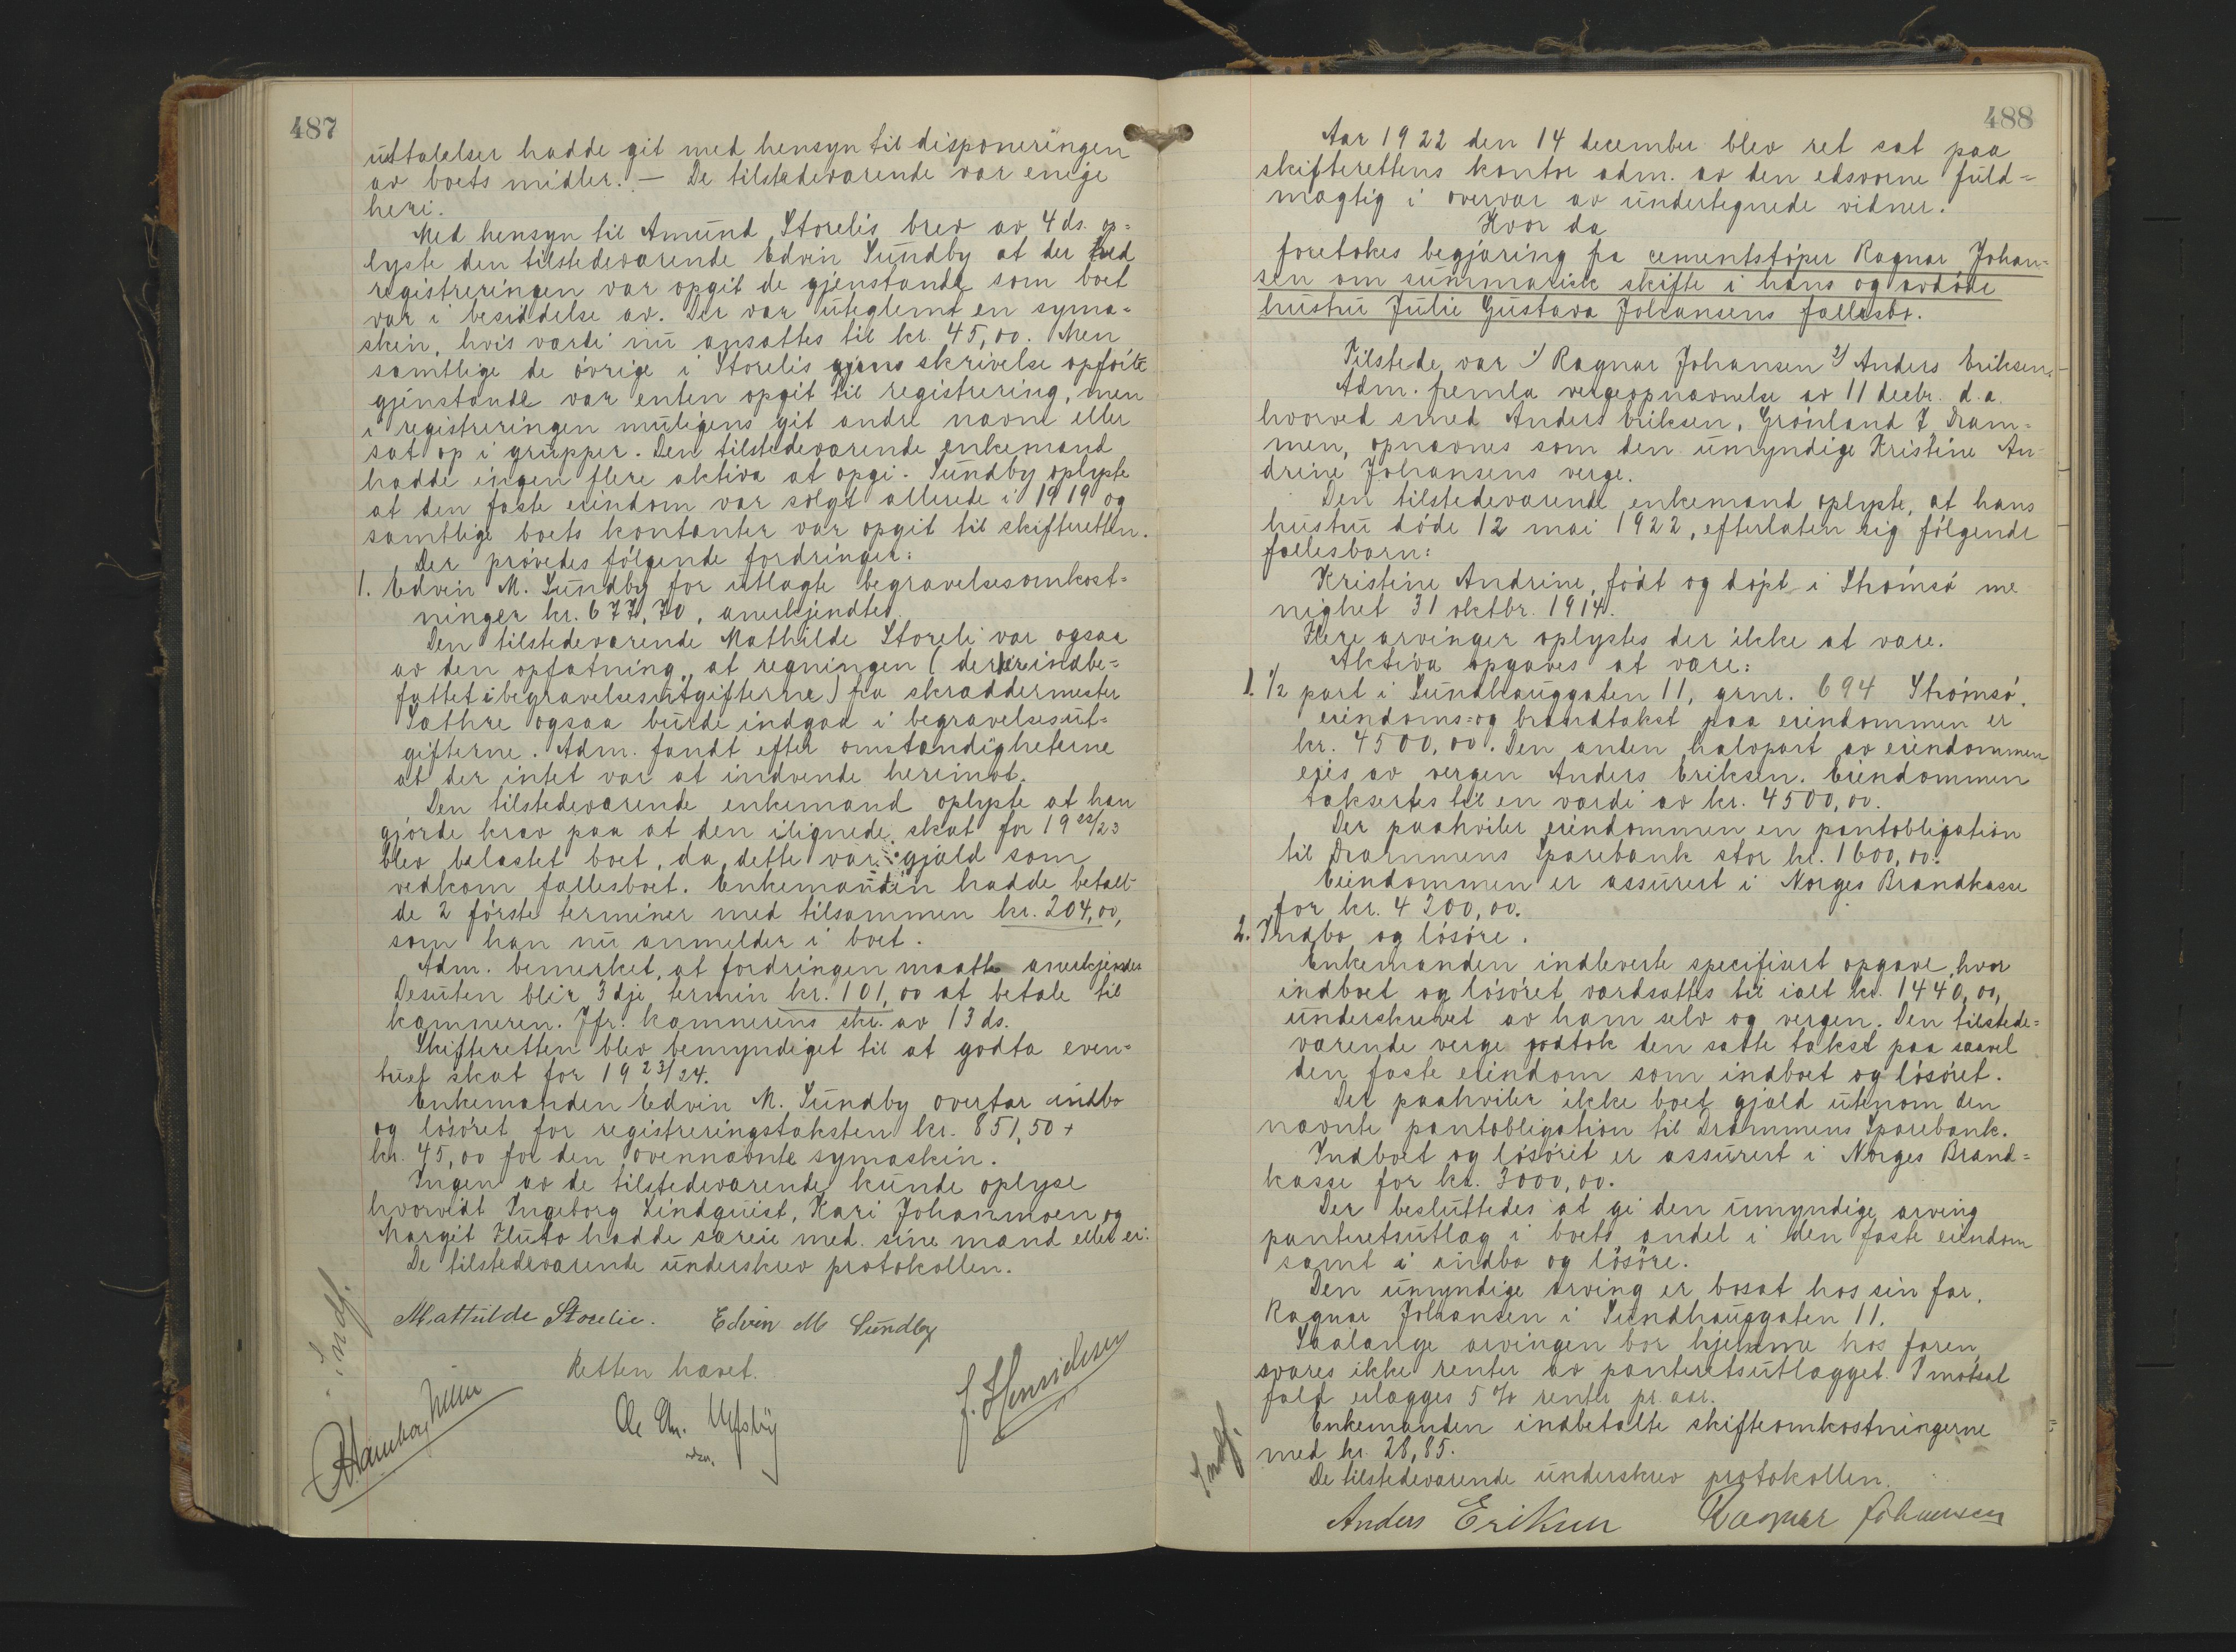 487
uttalelser hadde git med hensyn til disponeringen
av boets midler. — De tilstedeværende var enige
heri.
Med hensyn til Amund Storelis brev av 4 ds. op=
lyste den tilstedeværende Edvin Sundby at der ved
registreringen var opgit de gjenstande som boet
var i besiddelse av. Der var uteglemt en syma=
skin, hvis værdi nu ansattes til kr. 45,00. Men
samtlige de övrige i Storelis skrivelse opförte
gjenstande var enten opgit til registrering, men
i registreringen muligens git andre navne eller
sat op i grupper. Den tilstedeværende enkemand
hadde ingen flere aktiva at opgi. Sundby oplyste
at den faste eiendom var solgt allerede i 1919 og
samtlige boets kontanter var opgit til skifteretten.
Der prövedes fölgende fordringer:
1. Edvin M. Sundby for utlagte begravelsesomkost=
ninger kr. 677,70, anerkjendtes.
Den tilstedeværende Mathilde Storeli var ogsaa
av den opfatning, at regningen (der er indbe=
fattet i begravelsesutgifterne) fra skræddermester
Sæthre ogsaa burde indgaa i begravelsesut=
gifterne. Adm. fandt efter omstændigheterne
at der intet var at indvende herimot.
Den tilstedeværende enkemand oplyste at han
gjorde krav paa at den ilignede skat for 1922/23
blev belastet boet, da dette var gjæld som
vedkom fællesboet. Enkemanden hadde betalt
de 2 förste terminer med tilsammen kr. 204,00,
som han nu anmelder i boet.
Adm. bemerket, at fordringen maatte anerkjendes
Desuten blir 3dje termin kr. 101,00 at betale til
kæmneren. Jfr. kæmnerens skr. av 13 ds.
Skifteretten blev bemyndiget til at godta even=
tuel skat for 1923/24.
Enkemanden Edvin M. Sundby overtar indbo
og lösöret for registreringstaksten kr. 851,50 +
kr. 45,00 for den ovennævnte symaskin.
Ingen av de tilstedeværende kunde oplyse
hvorvidt Ingeborg Lindquist, Kari Johanmoen og
Margit Fluto hadde særeie med sine mænd eller ei.
De tilstedeværende underskrev protokollen.
Mathilde Storelie. Edvin M Sundby
Retten hævet.
Indf.
488
Aar 1922 den 14 december blev ret sat paa
skifterettens kontor adm. av den edsvorne fuld=
mægtig i overvær av undertegnede vidner.
Hvor da
foretokes begjæring fra cementstöper Ragnar Johan=
sen om summarisk skifte i hans og avdöde
hustru Julie Gustava Johansens fællesbo.
Tilstede var 1/ Ragnar Johansen 2/ Anders Eriksen.
Adm. fremla vergeopnævnelse av 11 decbr. d.a.
hvorved smed Anders Eriksen, Grönland 7 Dram=
men, opnævnes som den umyndige Kristine An=
drine Johansens verge.
Den tilstedeværende enkemand oplyste, at hans
hustru döde 12 mai 1922, efterlaten sig fölgende
fællesbarn:
Kristine Andrine, födt og döpt i Strömsö me
nighet 31 oktbr. 1914.
Flere arvinger oplystes der ikke at være.
Aktiva opgaves at være:
1. 1/2 part i Sundhauggaten 11, grnr. 694 Strömsö.
eiendoms= og brandtakst paa eiendommen er
kr. 4500,00. Den anden halvpart av eiendommen
eies av vergen Anders Eriksen. Eiendommen
taksertes til en værdi av kr. 4500,00.
Der paahviler eiendommen en pantobligation
til Drammens Sparebank stor kr. 1600,00.
Eiendommen er assurert i Norges Brandkasse
for kr. 4200,00.
2. Indbo og lösöre.
Enkemanden indleverte specifisert opgave, hvor
indboet og lösöret værdsattes til ialt kr. 1440,00,
underskrevet av ham selv og vergen. Den tilstede=
værende verge godtok den satte takst paa saavel
den faste eiendom som indboet og lösöret.
Det paahviler ikke boet gjæld utenom den
nævnte pantobligation til Drammens Sparebank.
Indboet og lösöret er assurert i Norges Brand=
kasse for kr. 3000,00.
Der besluttedes at gi den umyndige arving
panteretsutlæg i boets andel i den faste eiendom
samt i indbo og lösöre.
Den umyndige arving er bosat hos sin far,
Ragnar Johansen i Sundhauggaten 11.
Saalænge arvingen bor hjemme hos faren,
svares ikke renter av panteretsutlægget. I motsat
fald erlægges 5 % renter pr. aar.
Enkemanden indbetalte skifteomkostningerne
med kr. 28,85.
De tilstedeværende underskrev protokollen.
Indf.
Anders Eriksen Ragnar Johansen